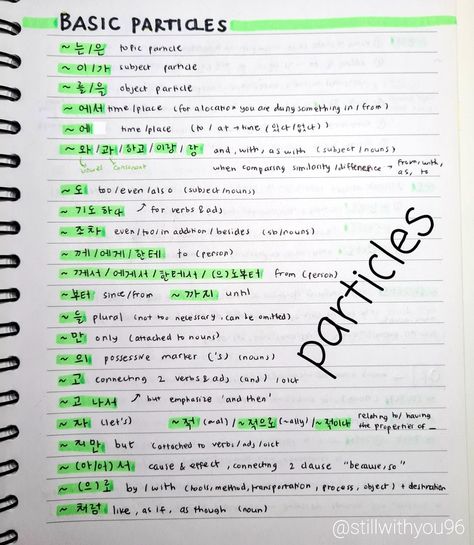 BASIC PARTICLES
~ 는/은 topic particle
~ 이/가 subject particle
~ 를/을 object particle
~ 에서 time/place (for a location you are doing something in / from)
~ 에 time/place (to / at → time / 있다/없다)
~ 와/과/하고/이랑/랑 and, with, as with (subject/nouns)
vowel consonant
when comparing similarity/difference → from, with, as, to
~ 도 too/even/also (subject/nouns)
~ 기도 하다 ↗ for verbs & adj
~ 조차 even/too/in addition/besides (sb/nouns)
~ 께/에게/한테 to (person)
~ 께서/에게서/한테서/(으)로부터 from (person)
~ 부터 since/from ~ 까지 until
~ 들 plural (not too necessary, can be omitted)
~ 만 only (attached to nouns)
~ 의 possessive marker ('s) (nouns)
~ 고 connecting 2 verbs & adj (and) / 이다
~ 고 나서 ↗ but emphasize 'and then'
~ 자 (let's) ~ 적 (~al) / ~적으로 (~ally) / ~적이다 relating to/having the properties of _
~ 지만 but (attached to verb/adj/이다
~ (아/어)서 cause & effect, connecting 2 clause "because, so"
~ (으)로 by/with (tools, method, transportation, process, object) + destination
~ 처럼 like, as if, as though (noun)
particles
@stillwithyou96